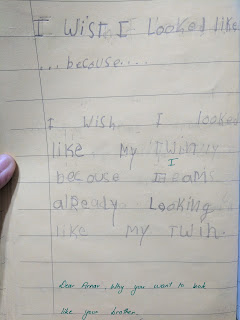 I Wish I Looked like
...because....
I Wish I looked
like my Twin
because I
already Looking
like my Twin.
Dear Amar, Why you want to look
like your brother.